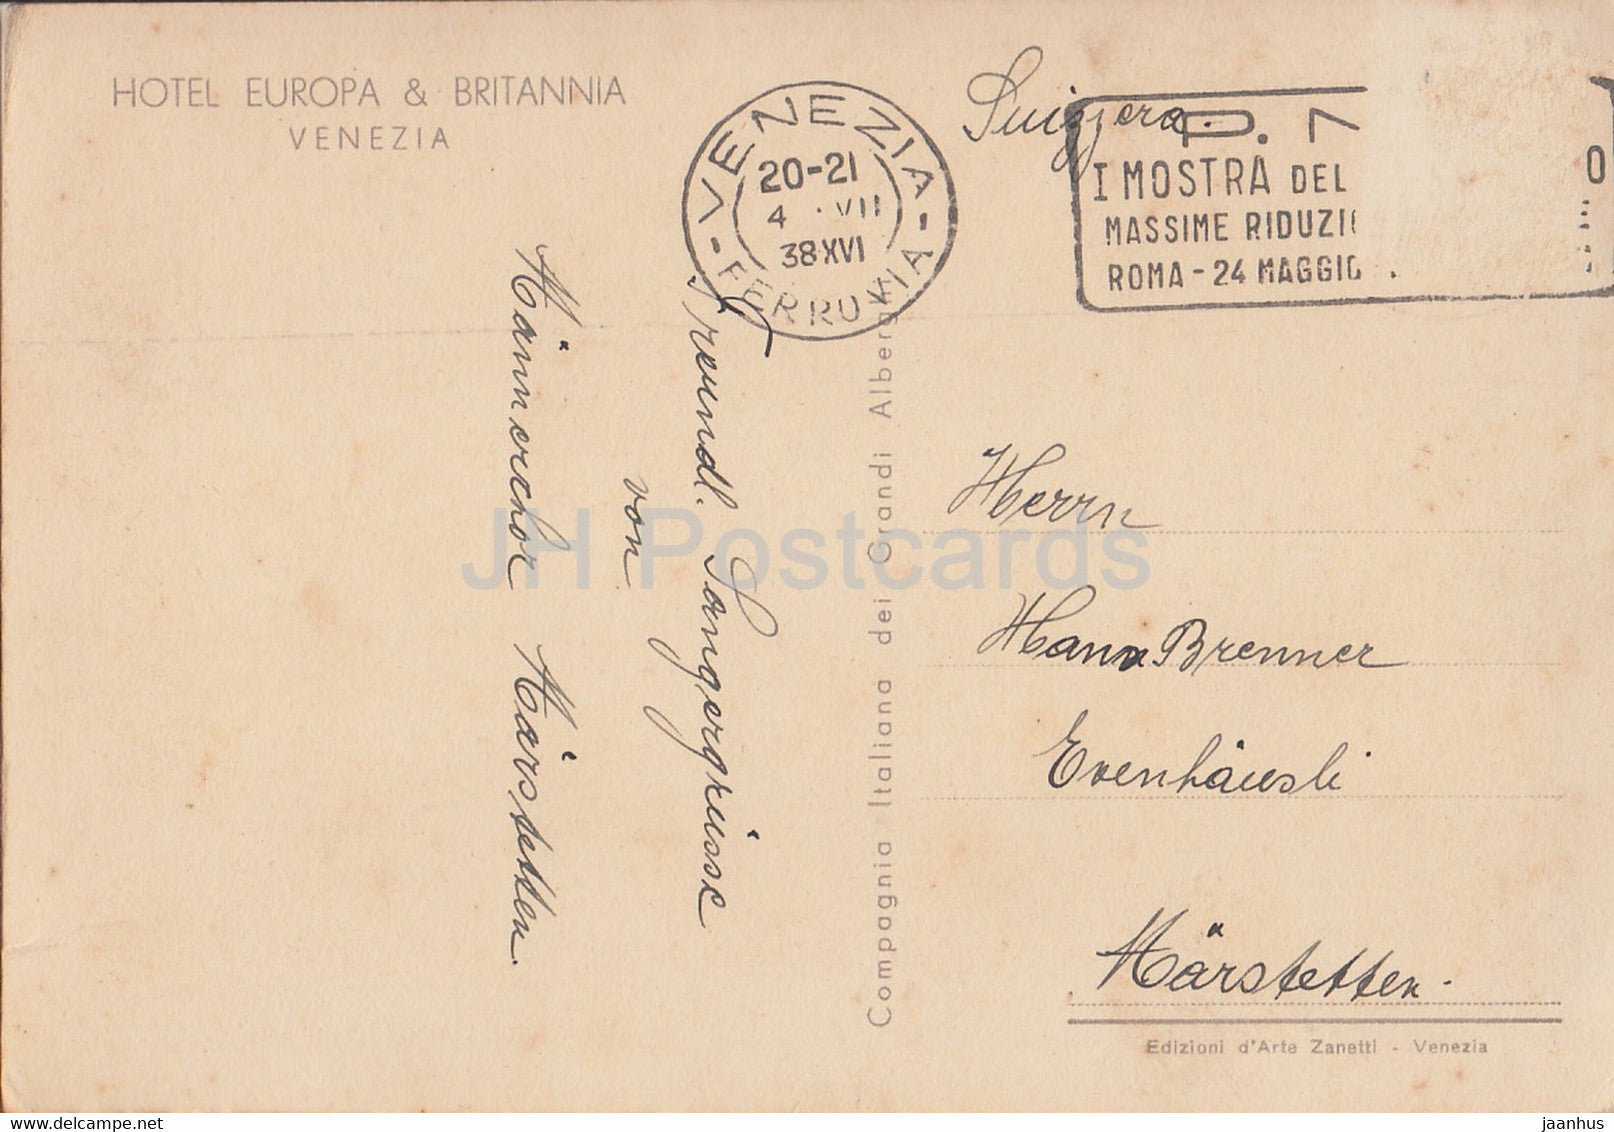 HOTEL EUROPA & BRITANNIA
VENEZIA
VENEZIA - FERROVIA -
20-21
4 · VII
38 XVI
Suizzera.
P.
I MOSTRA DEL
MASSIME RIDUZI
ROMA - 24 MAGGIO
O
Freundl. Sängergrüsse
von
Männerchor Märstetten.
Compagnia Italiana dei Grandi Alberghi
Herrn
Hans Brenner
Evenhäusli
Märstetten.
Edizioni d'Arte Zanetti - Venezia
JH Postcards
jaanhus
delcampe.net